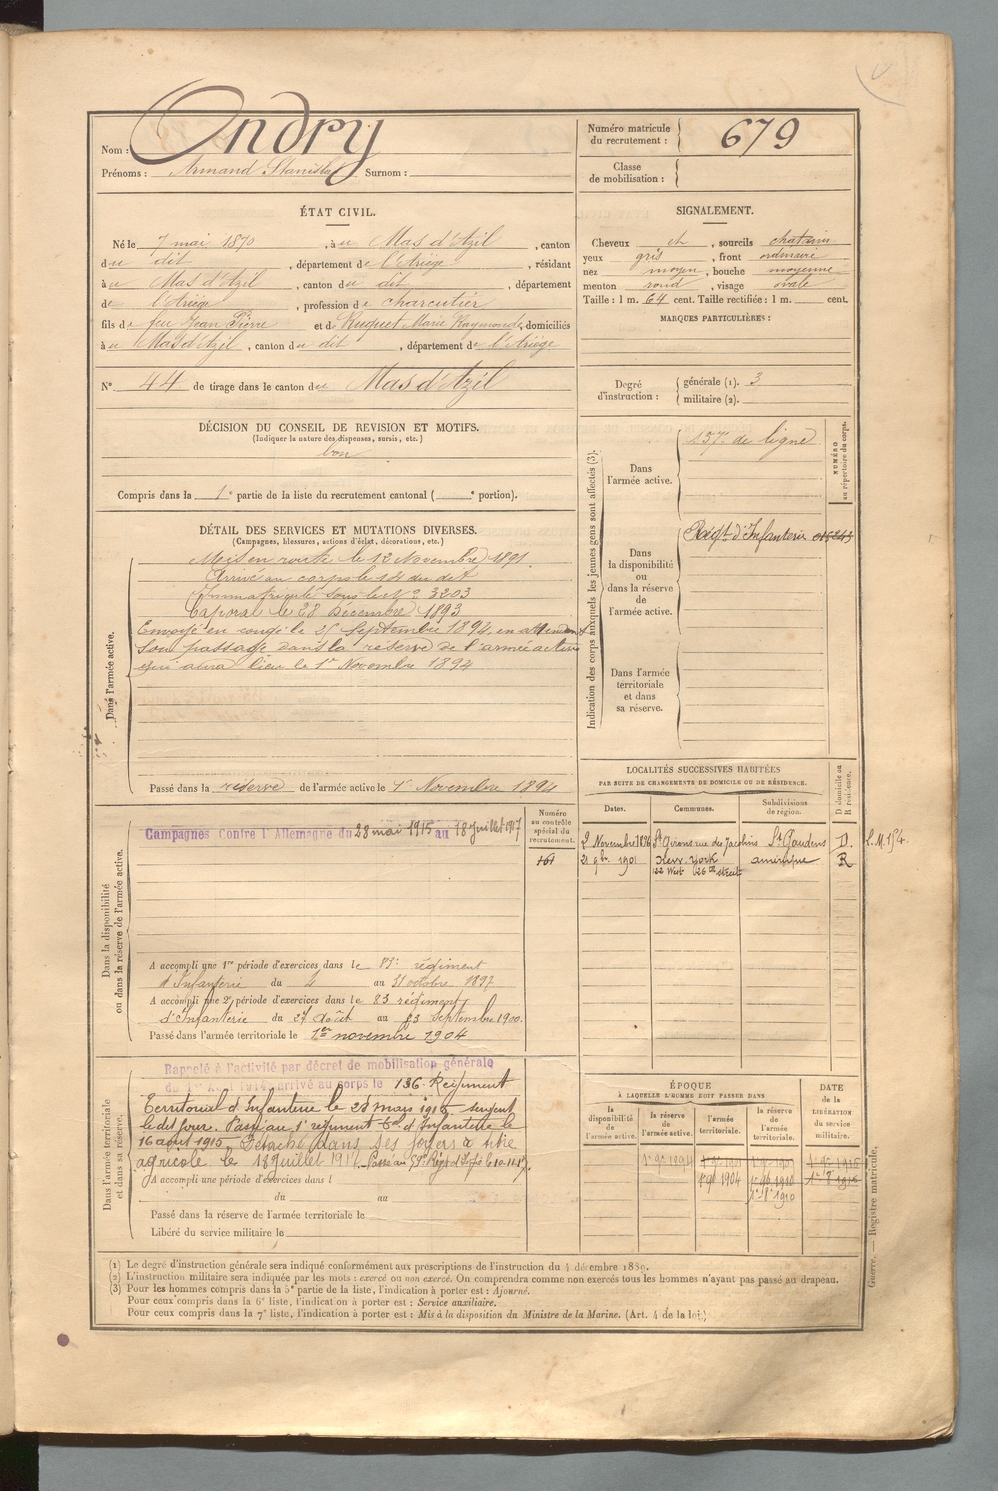 Nom : Ondry
Prénoms : Armand Stanislas Surnom :
Numéro matricule du recrutement : 679
Classe de mobilisation :
ÉTAT CIVIL.
Né le 7 mai 1870, à u Mas d'Azil, canton
du dit, département de l'Ariège, résidant
à u Mas d'Azil, canton du dit, département
de l'Ariège, profession de charcutier
fils de feu Jean Pierre et de Ruquet Marie Raymonde, domiciliés
à u Mas d'Azil, canton du dit, département de l'Ariège
N° 44 de tirage dans le canton du Mas d'Azil
SIGNALEMENT.
Cheveux ch, sourcils chatains
yeux gris, front ordinaire
nez moyen, bouche moyenne
menton rond, visage ovale
Taille : 1 m. 64 cent. Taille rectifiée : 1 m. cent.
MARQUES PARTICULIÈRES :
Degré d'instruction : générale (1). 3
militaire (2).
DÉCISION DU CONSEIL DE REVISION ET MOTIFS.
(Indiquer la nature des dispenses, sursis, etc.)
bon
Compris dans la 1e partie de la liste du recrutement cantonal ( e portion).
DÉTAIL DES SERVICES ET MUTATIONS DIVERSES.
(Campagnes, blessures, actions d'éclat, décorations, etc.)
Dans l'armée active.
Mis en route le 12 Novembre 1891.
Arrivé au corps le 14 du dit
Immatriculé sous le N° 3203
Caporal le 28 Décembre 1893
Envoyé en congé le 25 Septembre 1894, en attendant
son passage dans la réserve de l'armée active
qui aura lieu le 1er Novembre 1894
Passé dans la réserve de l'armée active le 1er Novembre 1894
Indication des corps auxquels les jeunes gens sont affectés (3).
Dans l'armée active.
de ligne
NUMÉRO au répertoire du corps.
Dans la disponibilité ou dans la réserve de l'armée active.
Régt d'Infanterie
Dans l'armée territoriale et dans sa réserve.
LOCALITÉS SUCCESSIVES HABITÉES
PAR SUITE DE CHANGEMENTS DE DOMICILE OU DE RÉSIDENCE.
Dates. Communes. Subdivisions de région. D domicile ou R résidence.
2 Novembre 1896 St Girons rue des Jacobins St Gaudens D.
21 9bre 1901 New-York amérique R
West 26th street
Dans la disponibilité ou dans la réserve de l'armée active.
Numéro au contrôle spécial du recrutement.
161
Campagnes Contre l'Allemagne du 28 mai 1915 au 18 Juillet 1917
A accompli une 1re période d'exercices dans le régiment
d'Infanterie du 4 au 31 octobre 1897
A accompli une 2e période d'exercices dans le 83 régiment
d'Infanterie du 27 août au 23 septembre 1900.
Passé dans l'armée territoriale le 1er novembre 1904
Dans l'armée territoriale et dans sa réserve.
Rappelé à l'activité par décret de mobilisation générale
du 1er Août 1914, arrivé au corps le 136 Régiment
Territorial d'Infanterie le 28 mars 1915 sergent
le dit jour. Passé au 1er régiment Cal d'Infanterie le
16 août 1915 Détaché dans ses foyers à titre
agricole le 18 juillet 1917. Passé au
A accompli une période d'exercices dans l
du au
Passé dans la réserve de l'armée territoriale le
Libéré du service militaire le
ÉPOQUE
À LAQUELLE L'HOMME DOIT PASSER DANS
la disponibilité de l'armée active. la réserve de l'armée active. l'armée territoriale. la réserve de l'armée territoriale.
DATE de la LIBÉRATION du service militaire.
1er 9bre 1894
1er 9bre 1904 1er 9bre 1910
1er 8bre 1910
(1) Le degré d'instruction générale sera indiqué conformément aux prescriptions de l'instruction du 4 décembre 1889.
(2) L'instruction militaire sera indiquée par les mots : exercé ou non exercé. On comprendra comme non exercés tous les hommes n'ayant pas passé au drapeau.
(3) Pour les hommes compris dans la 5e partie de la liste, l'indication à porter est : Ajourné.
Pour ceux compris dans la 6e liste, l'indication à porter est : Service auxiliaire.
Pour ceux compris dans la 7e liste, l'indication à porter est : Mis à la disposition du Ministre de la Marine. (Art. 4 de la loi.)
Guerre. — Registre matricule.